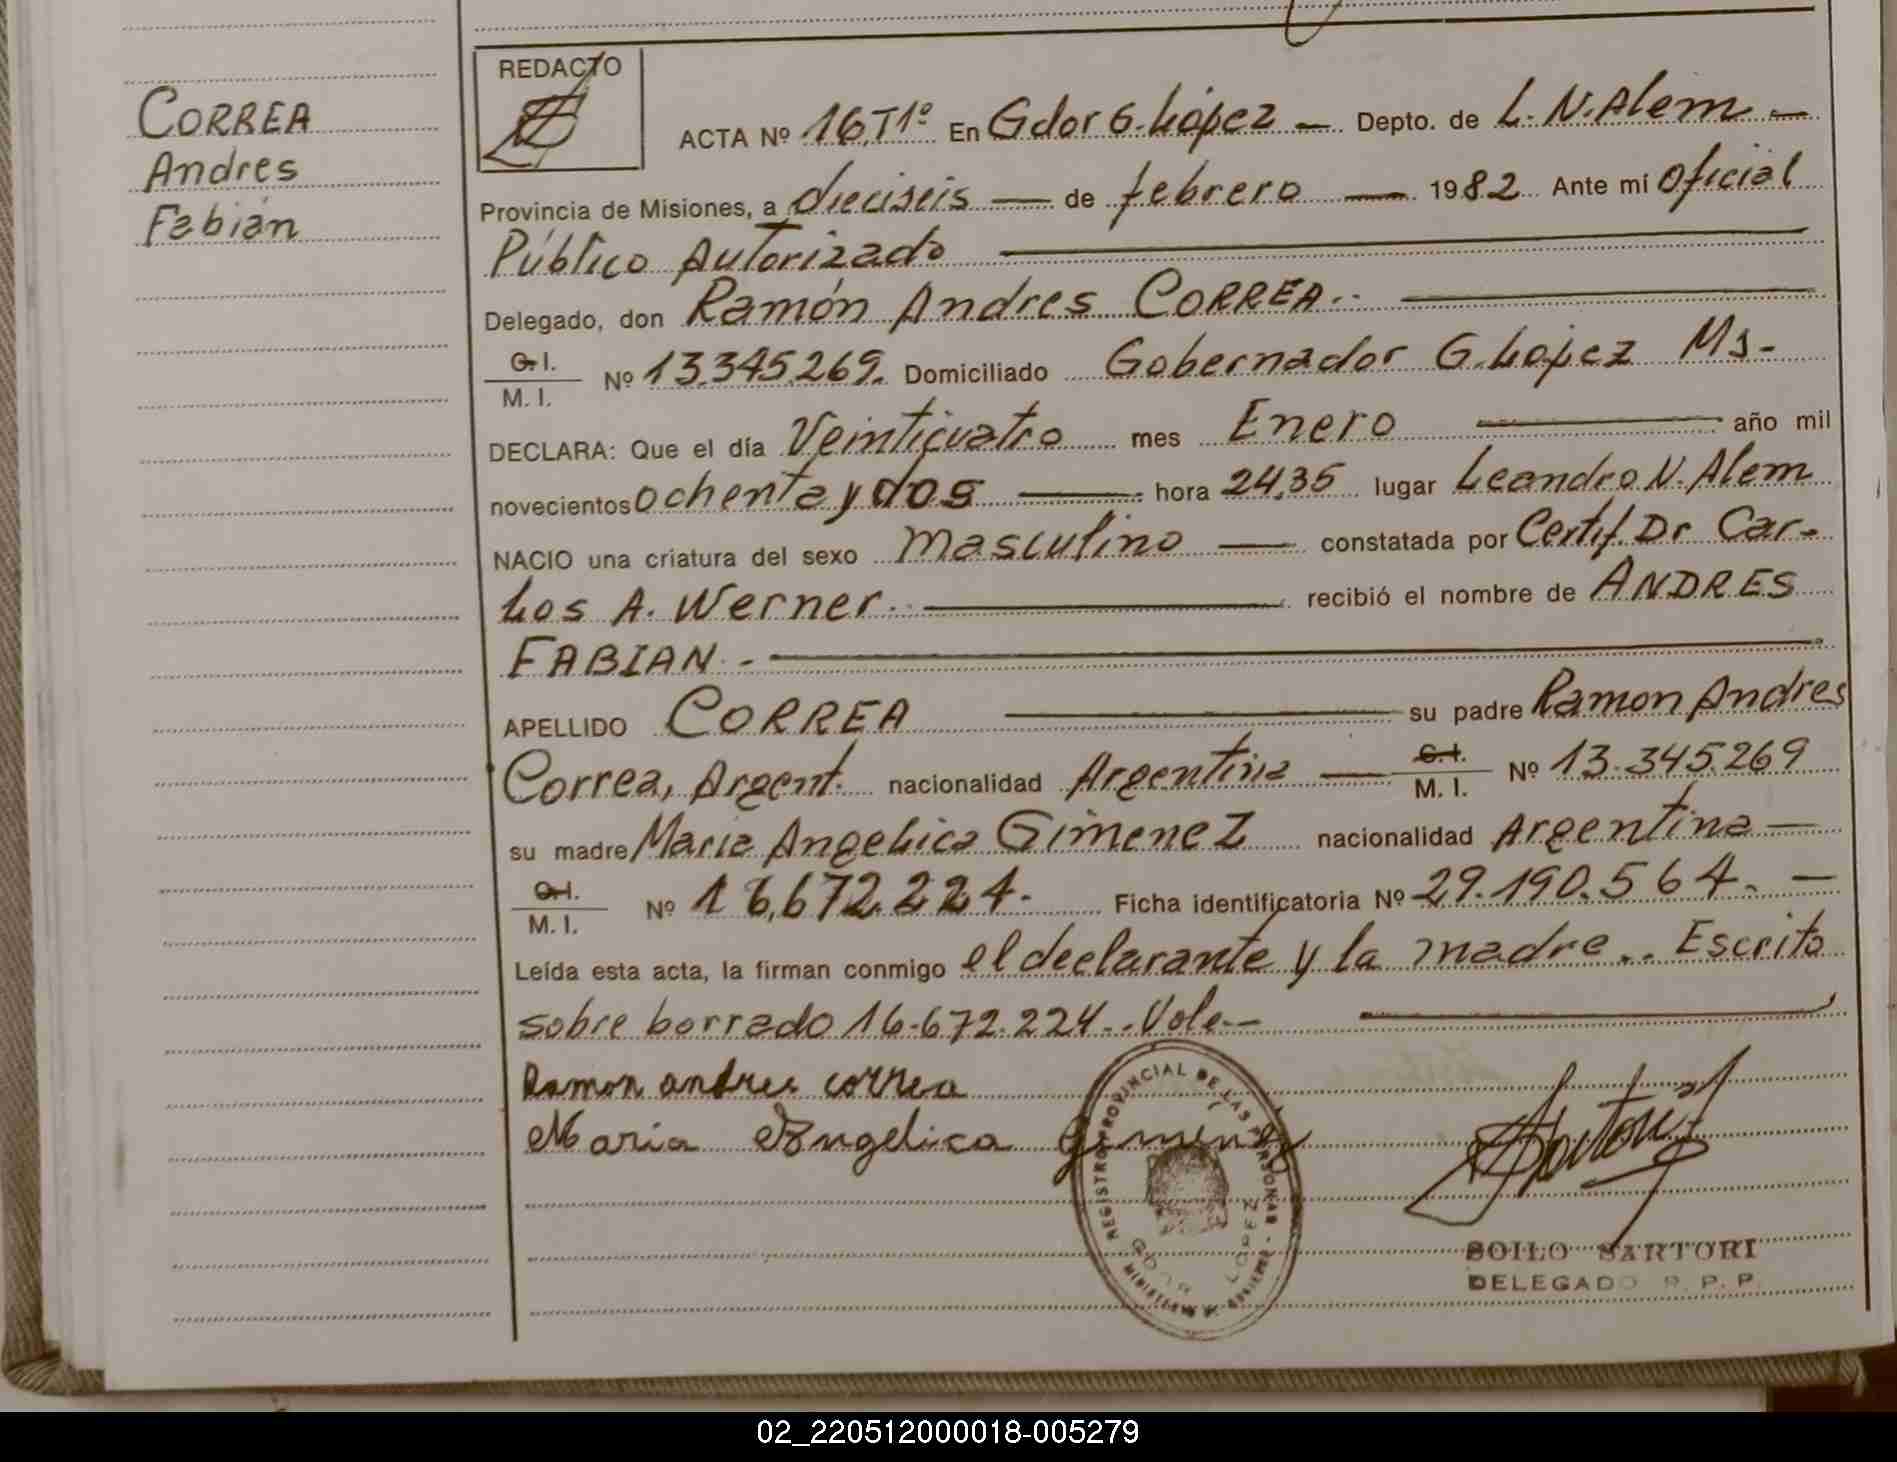 CORREA
Andrés
Fabián
REDACTO
ACTA Nº 16,T1º En Gdor G. López — Depto. de L. N. Alem —
Provincia de Misiones, a dieciseis — de febrero — 1982 Ante mí Oficial
Público Autorizado
Delegado, don Ramón Andres CORREA.-
C.I.
M. I. Nº 13.345.269. Domiciliado Gobernador G. López Ms-
DECLARA: Que el día Veinticuatro mes Enero año mil
novecientos ochenta y dos — hora 24,35 lugar Leandro N. Alem
NACIO una criatura del sexo masculino — constatada por Certif. Dr Car-
los A. Werner.- recibió el nombre de ANDRES
FABIAN.-
APELLIDO CORREA su padre Ramon Andres
Correa, Argent. nacionalidad Argentina — C.I.
M. I. Nº 13.345.269
su madre Maria Angelica Gimenez nacionalidad Argentina —
C.I.
M. I. Nº 16.672.224. Ficha identificatoria Nº 29.190.564. —
Leída esta acta, la firman conmigo el declarante y la madre.. Escrito
sobre borrado 16.672.224.. Vale.-
Ramon andres correa
Maria Angelica Gimenez
REGISTRO PROVINCIAL DE LAS PERSONAS
GDOR LOPEZ
SOILO SARTORI
DELEGADO R. P. P.
02_220512000018-005279